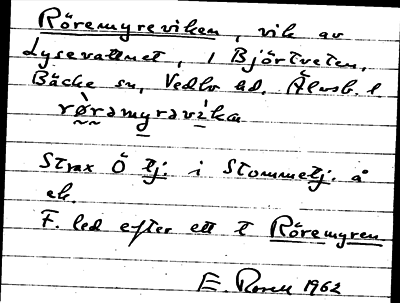 Röremyreviken, vik av
Lysevattnet, i Björtveten,
Bäcke sn, Vedbo hd, Älvsb. l.
rø̀ramyravìka
Strax Ö tj. i Stommetj. å
ek.
F. led efter ett t Röremyren
E Rosell 1962